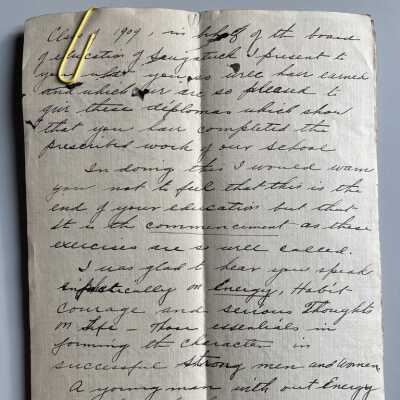 Class of 1909, in behalf of the board
of education of Saugatuck I present to
you what you so well have earned
and which we are so pleased to
give these diplomas which show
that you have completed the
prescribed work of our school
In doing this I would warn
you not to feel that this is the
end of your education but that
it is the commencement as these
exercises are so well called.
I was glad to hear you speak
emphatically on Energy, Habit
courage and serious Thoughts
on life - Those essentials in
forming the character in
successful strong men and women
A young man with out Energy